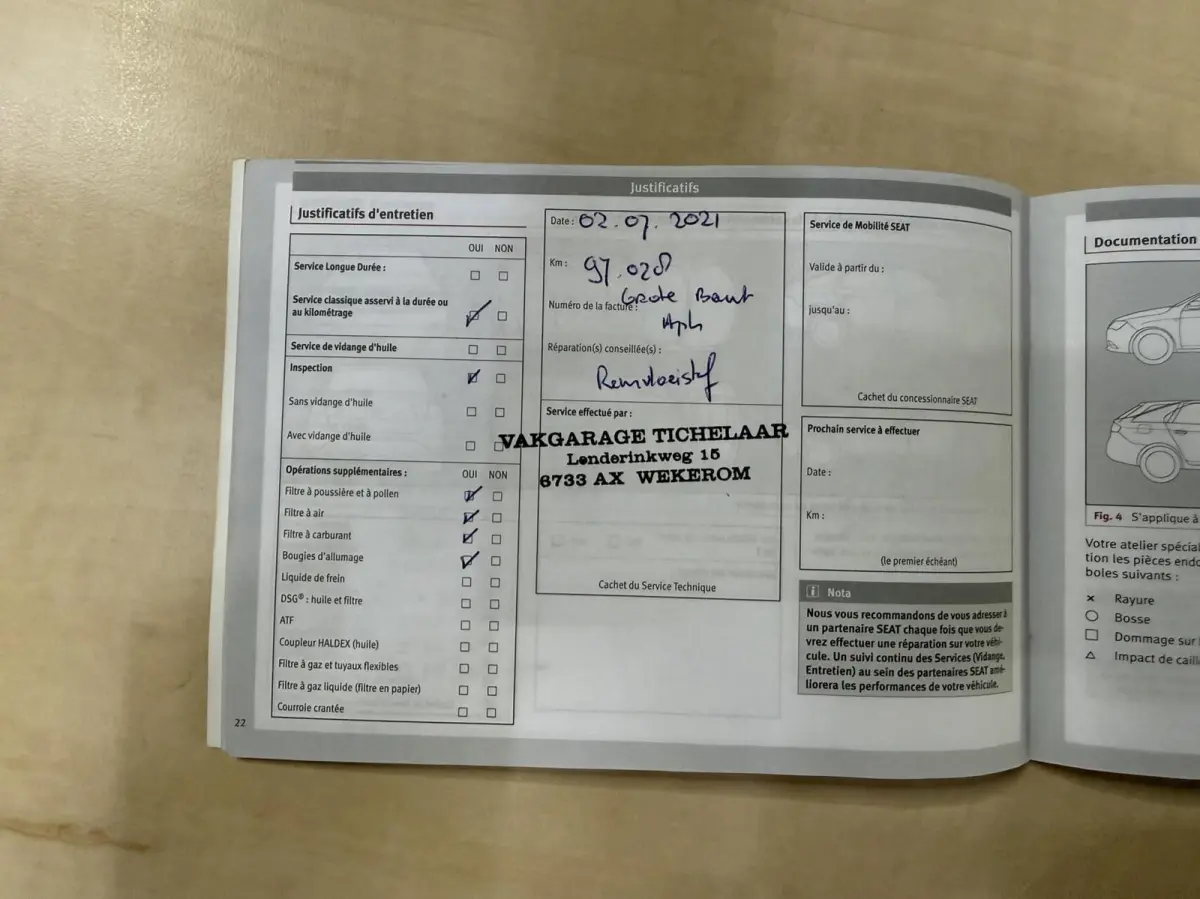 Justificatifs
Justificatifs d'entretien
OUI NON
Service Longue Durée :
Service classique asservi à la durée ou
au kilométrage
Service de vidange d'huile
Inspection
Sans vidange d'huile
Avec vidange d'huile
Opérations supplémentaires : OUI NON
Filtre à poussière et à pollen
Filtre à air
Filtre à carburant
Bougies d'allumage
Liquide de frein
DSG® : huile et filtre
ATF
Coupleur HALDEX (huile)
Filtre à gaz et tuyaux flexibles
Filtre à gaz liquide (filtre en papier)
Courroie crantée
22
Date : 02.07.2021
Km : 97.028
Grote Beurt
Numéro de la facture :
Apk
Réparation(s) conseillée(s) :
Remvloeistof
Service effectué par :
VAKGARAGE TICHELAAR
Lenderinkweg 15
6733 AX WEKEROM
Cachet du Service Technique
Service de Mobilité SEAT
Valide à partir du :
jusqu'au :
Cachet du concessionnaire SEAT
Prochain service à effectuer
Date :
Km :
(le premier échéant)
i Nota
Nous vous recommandons de vous adresser à
un partenaire SEAT chaque fois que vous de-
vrez effectuer une réparation sur votre véhi-
cule. Un suivi continu des Services (Vidange,
Entretien) au sein des partenaires SEAT amé-
liorera les performances de votre véhicule.
Documentation
Fig. 4 S'applique à
Votre atelier spécial
tion les pièces endo
boles suivants :
Rayure
Bosse
Dommage sur
Impact de caill